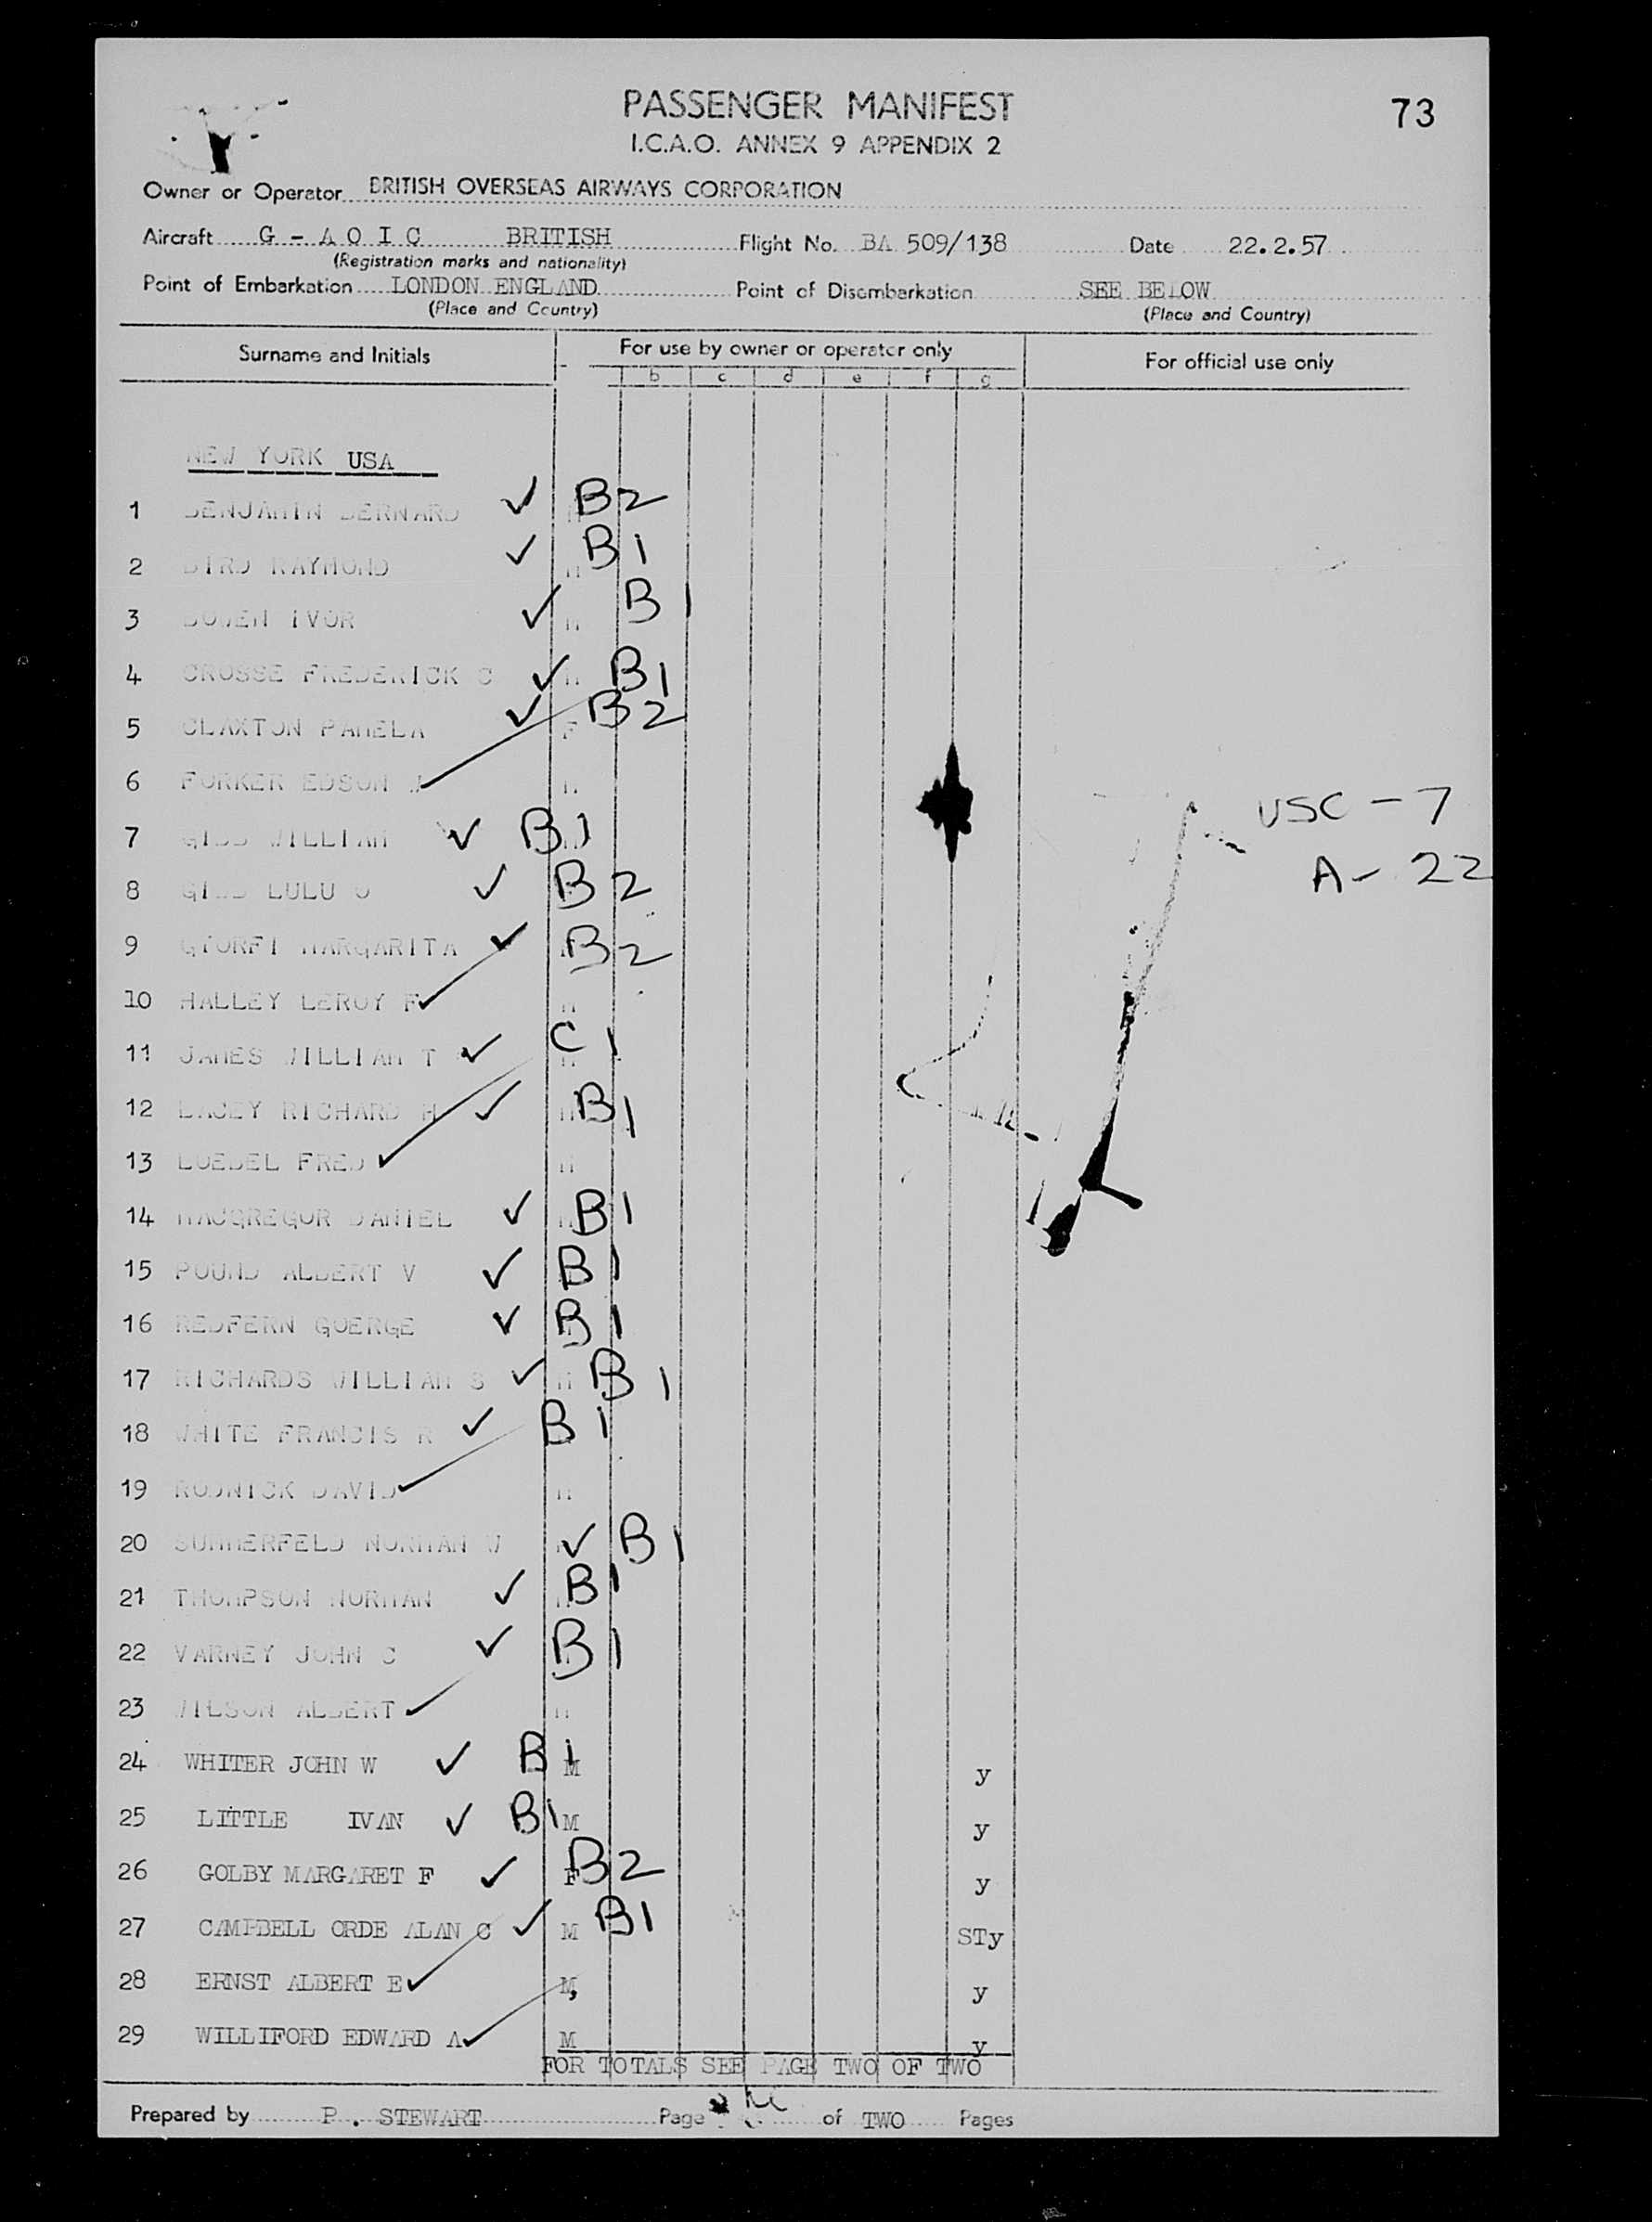 PASSENGER MANIFEST
73
I.C.A.O. ANNEX 9 APPENDIX 2
Owner or Operator BRITISH OVERSEAS AIRWAYS CORPORATION
Aircraft G - A O I C BRITISH Flight No. BA 509/138 Date 22.2.57
(Registration marks and nationality)
Point of Embarkation LONDON ENGLAND Point of Disembarkation SEE BELOW
(Place and Country) (Place and Country)
Surname and Initials For use by owner or operator only For official use only
b c d e f g
NEW YORK USA
1 BENJAMIN BERNARD ✓ B2
2 BIRD RAYMOND ✓ B1
3 IVOR ✓ B1
4 CROSSE FREDERICK C ✓ B1
5 CLAXTON PAMELA ✓ F B2
6 FORKER EDSON J ✓
7 WILLIAM ✓ B1
USC - 7
8 LULU ✓ B2
A - 22
9 MARGARITA ✓ B2
10 HALLEY LEROY F ✓
11 JAMES WILLIAM T ✓ C1
12 LACEY RICHARD H ✓ B1
13 FRED ✓
14 MACGREGOR DANIEL ✓ B1
15 POUND ALBERT V ✓ B1
16 REDFERN GOERGE ✓ B1
17 RICHARDS WILLIAM S ✓ B1
18 WHITE FRANCIS R ✓ B1
19 RODNICK DAVID ✓
20 SUMMERFELD NORMAN W ✓ B1
21 THOMPSON NORMAN ✓ B1
22 VARNEY JOHN C ✓ B1
23 WILSON ALBERT ✓
24 WHITER JOHN W ✓ B1 M y
25 LITTLE IVAN ✓ B1 M y
26 GOLBY MARGARET F ✓ F B2 y
27 CAMPBELL ORDE ALAN C ✓ M B1 STy
28 ERNST ALBERT E ✓ M, y
29 WILLIFORD EDWARD A ✓ M y
FOR TOTALS SEE PAGE TWO OF TWO
Prepared by P. STEWART Page of TWO Pages